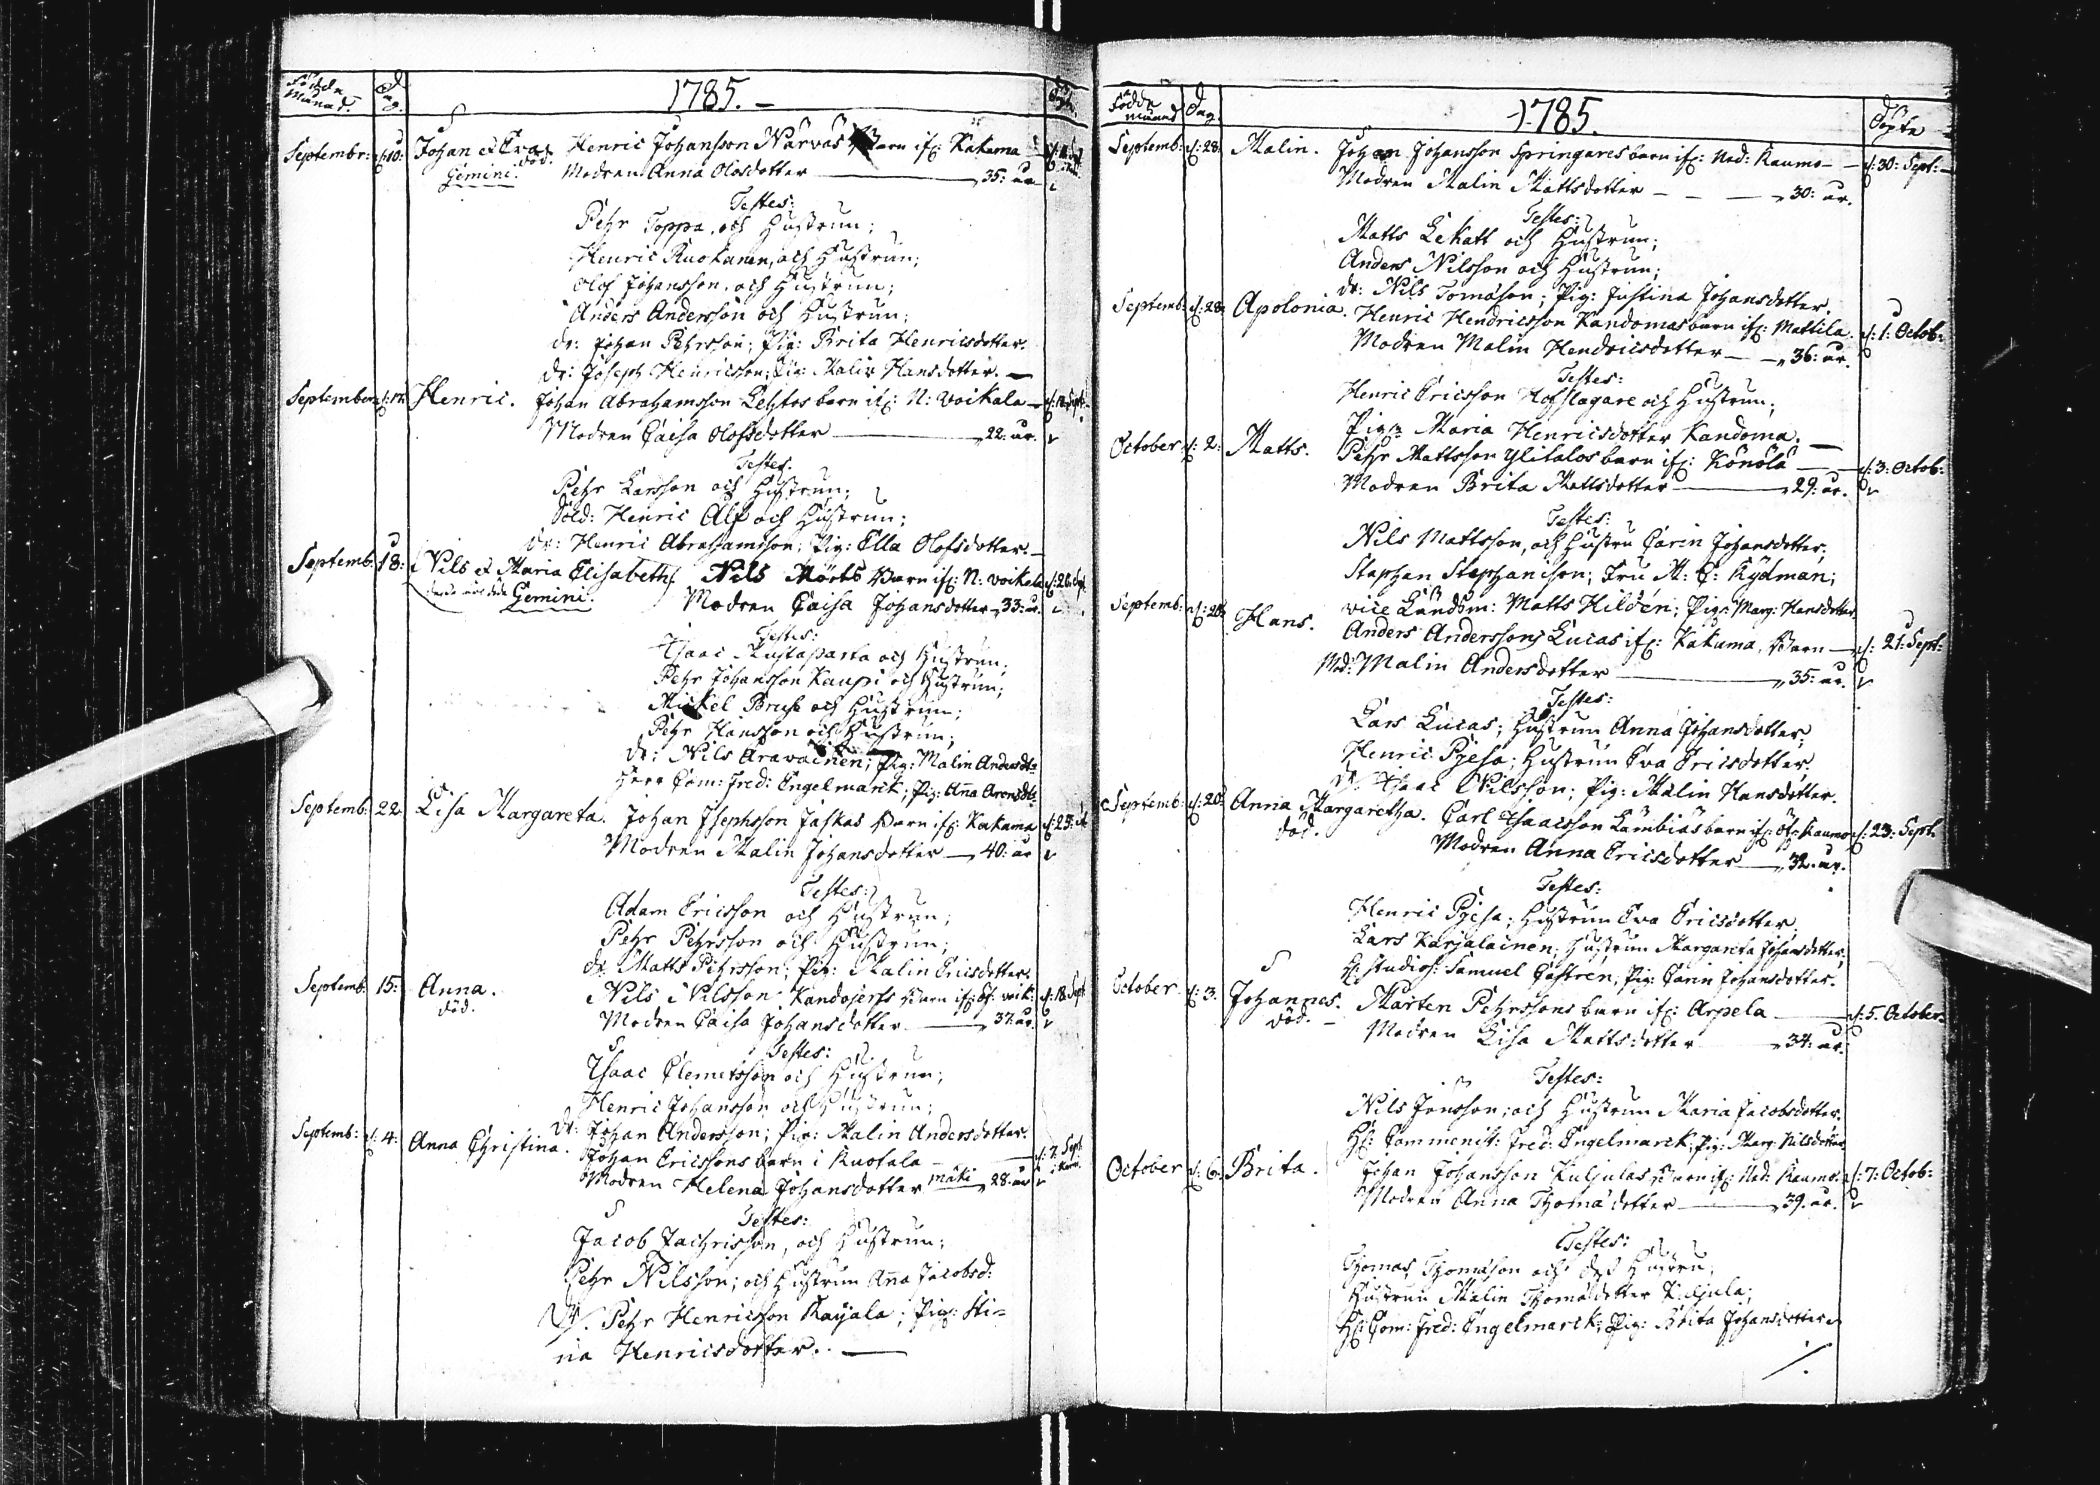 Födde Månad. Dag. 1785.
Septembr: d: 10: Johan et Eva Henric Johansson Närväs Barn if: Kakama
död. Gemini. Modren Anna Olosdotter 35: år
Testes:
Pehr Toppa, och Hustrun;
Henric Ruokanen, och Hustrun;
Olof Johansson, och Hustrun;
Anders Andersson och Hustrun;
dr: Johan Pehrsson; Pig: Brita Henricsdotter.
dr: Joseph Henricsson; Pig: Malin Hansdotter.
September Henric. Johan Abrahamsson Lehtos barn if: N: Woikala
Modren Caisa Olofsdotter 22: år.
Testes.
Pehr Larsson och Hustrun;
Sold: Henric Alf och Hustrun;
dr: Henric Abrahamsson; Pig: Ella Olofsdotter.
Septemb: 18: Nils et Maria Elisabeth Nils Mörts Barn if: N: Woikala
Gemini. Modren Caisa Johansdotter 33: år.
Testes:
Isaac Mustaparta och Hustrun;
Pehr Johansson Kaupi och Hustrun;
Mickel Bruse och Hustrun;
Pehr Hansson och Hustrun;
dr: Nils Aravainen; Pig: Malin Andersdt:
Herr Com: Fred: Engelmarck; Pig: Aña
Septemb: 22 Lisa Margareta. Johan Josephsson Jaskas Barn if: Kakama
Modren Malin Johansdotter 40: år
Testes:
Adam Ericsson och Hustrun;
Pehr Pehrsson och Hustrun;
dr: Matts Pehrsson; Pig: Malin Ericsdotter.
Septemb: 15: Anna. Nils Nilsson Kandojerfs Barn if: Öf: Woik: d: 18: Sept
död. Modren Caisa Johansdotter 37: år
Testes:
Isaac Clemetsson och Hustrun;
Henric Johansson och Hustrun;
dr: Johan Andersson; Pig: Malin Andersdotter.
Septemb: d: 4: Anna Christina. Johan Ericssons barn i Kuotala d: 7. Sept
Modren Helena Johansdotter mäki 28: år
Testes:
Jacob Zachrisson, och Hustrun;
Pehr Nilsson; och Hustrun Aña Jacobsd:
Dr. Pehr Henricsson Raijala; Pig: Sti-
na Henricsdotter.
Födde Månad Dag. 1785. Döpte
Septemb: d: 28 Malin. Johan Johansson Springares barn if: Ned: Raumo d: 30: Sept:
Modren Malin Mattsdotter 30: år.
Testes:
Matts Lekatt och Hustrun;
Anders Nilsson och Hustrun;
dr: Nils Tomasson; Pig: Justina Johansdotter.
Septemb: d: 28: Apolonia. Henric Hendricsson Kandomas barn if: Mattila d: 1: Octob:
Modren Malin Hendricsdotter 36: år.
Testes:
Henric Ericsson Hofslagare och Hustrun;
Pig: Maria Henricsdotter Kandoma.
October d: 2: Matts. Pehr Mattsson Ylitalos barn if: Könölä d: 3: Octob:
Modren Brita Mattsdotter 29: år.
Testes:
Nils Mattsson, och Hustru Carin Johansdotter;
Staphan Stephanison; Fru M: C: Rydman;
vice Ländsm: Matts Hildén; Pig: Marg: Hansdotter
Septemb: d: 20: Hans. Anders Anderssons Lucas if: Kakama, Barn d: 21: Sept:
Mod: Malin Andersdotter 35: år.
Testes:
Lars Lucas; Hustrun Anna Johansdotter;
Henric Pyesa; Hustrun Eva Ericsdotter.
dr: Isaac Nilsson; Pig: Malin Hansdotter.
Septemb: d: 20: Anna Margaretha. Carl Isaacsson Lambiäs barn if: Öf: Raumo d: 23: Sept
död. Modren Anna Ericsdotter 32: år.
Testes:
Henric Pyesa; Hustrun Eva Ericsdotter;
Lars Karjalainen; Hustrun Margareta Johansdotter;
H: Studios: Samuel Castren; Pig: Carin Johansdotter.
October d: 3. Johannes. Mårten Pehrssons barn if: Arpela d: 5. October
död. Modren Lisa Mattsdotter 34: år.
Testes:
Nils Jönsson; och Hustrun Maria Jacobsdotter.
H: Comminist: Fred: Engelmarck; Pig: Marg: Nilsdotter
October d: 6: Brita. Johan Johansson Kuljulas Barn if: Ned: Raumo d: 7: Octob:
Modren Anna Thomädotter 39: år.
Testes:
Thomas Thomason och dess Hustru;
Hustrun Malin Thomädotter Kuljula;
H: Com: Fred: Engelmarck; Pig: Brita Johansdotter